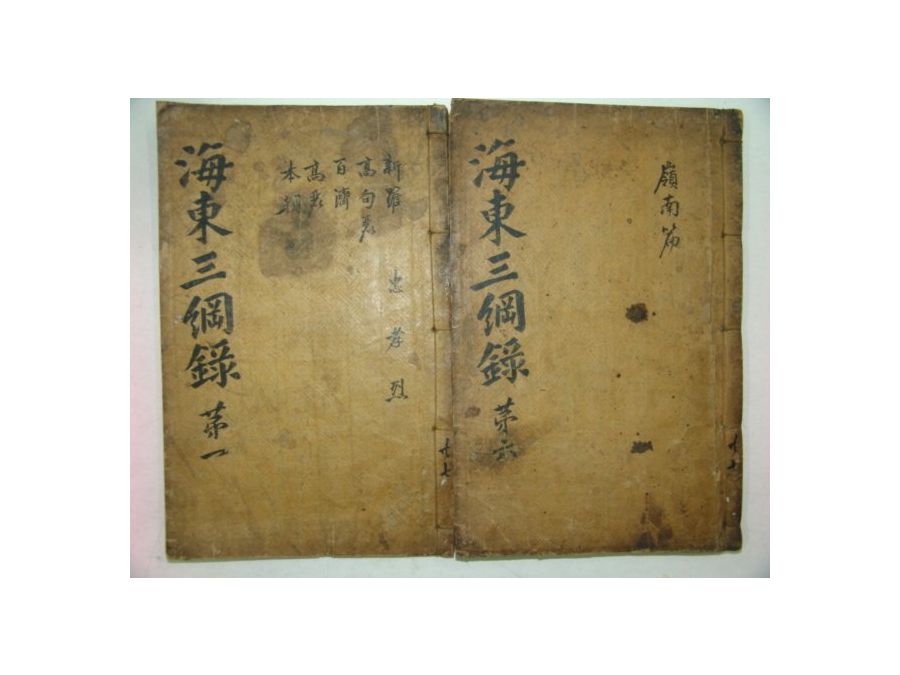 海東三綱錄 苐一
新羅
高句麗
百濟
高麗
本朝
忠 孝 烈
共七
海東三綱錄 苐六
嶺南篇
共七